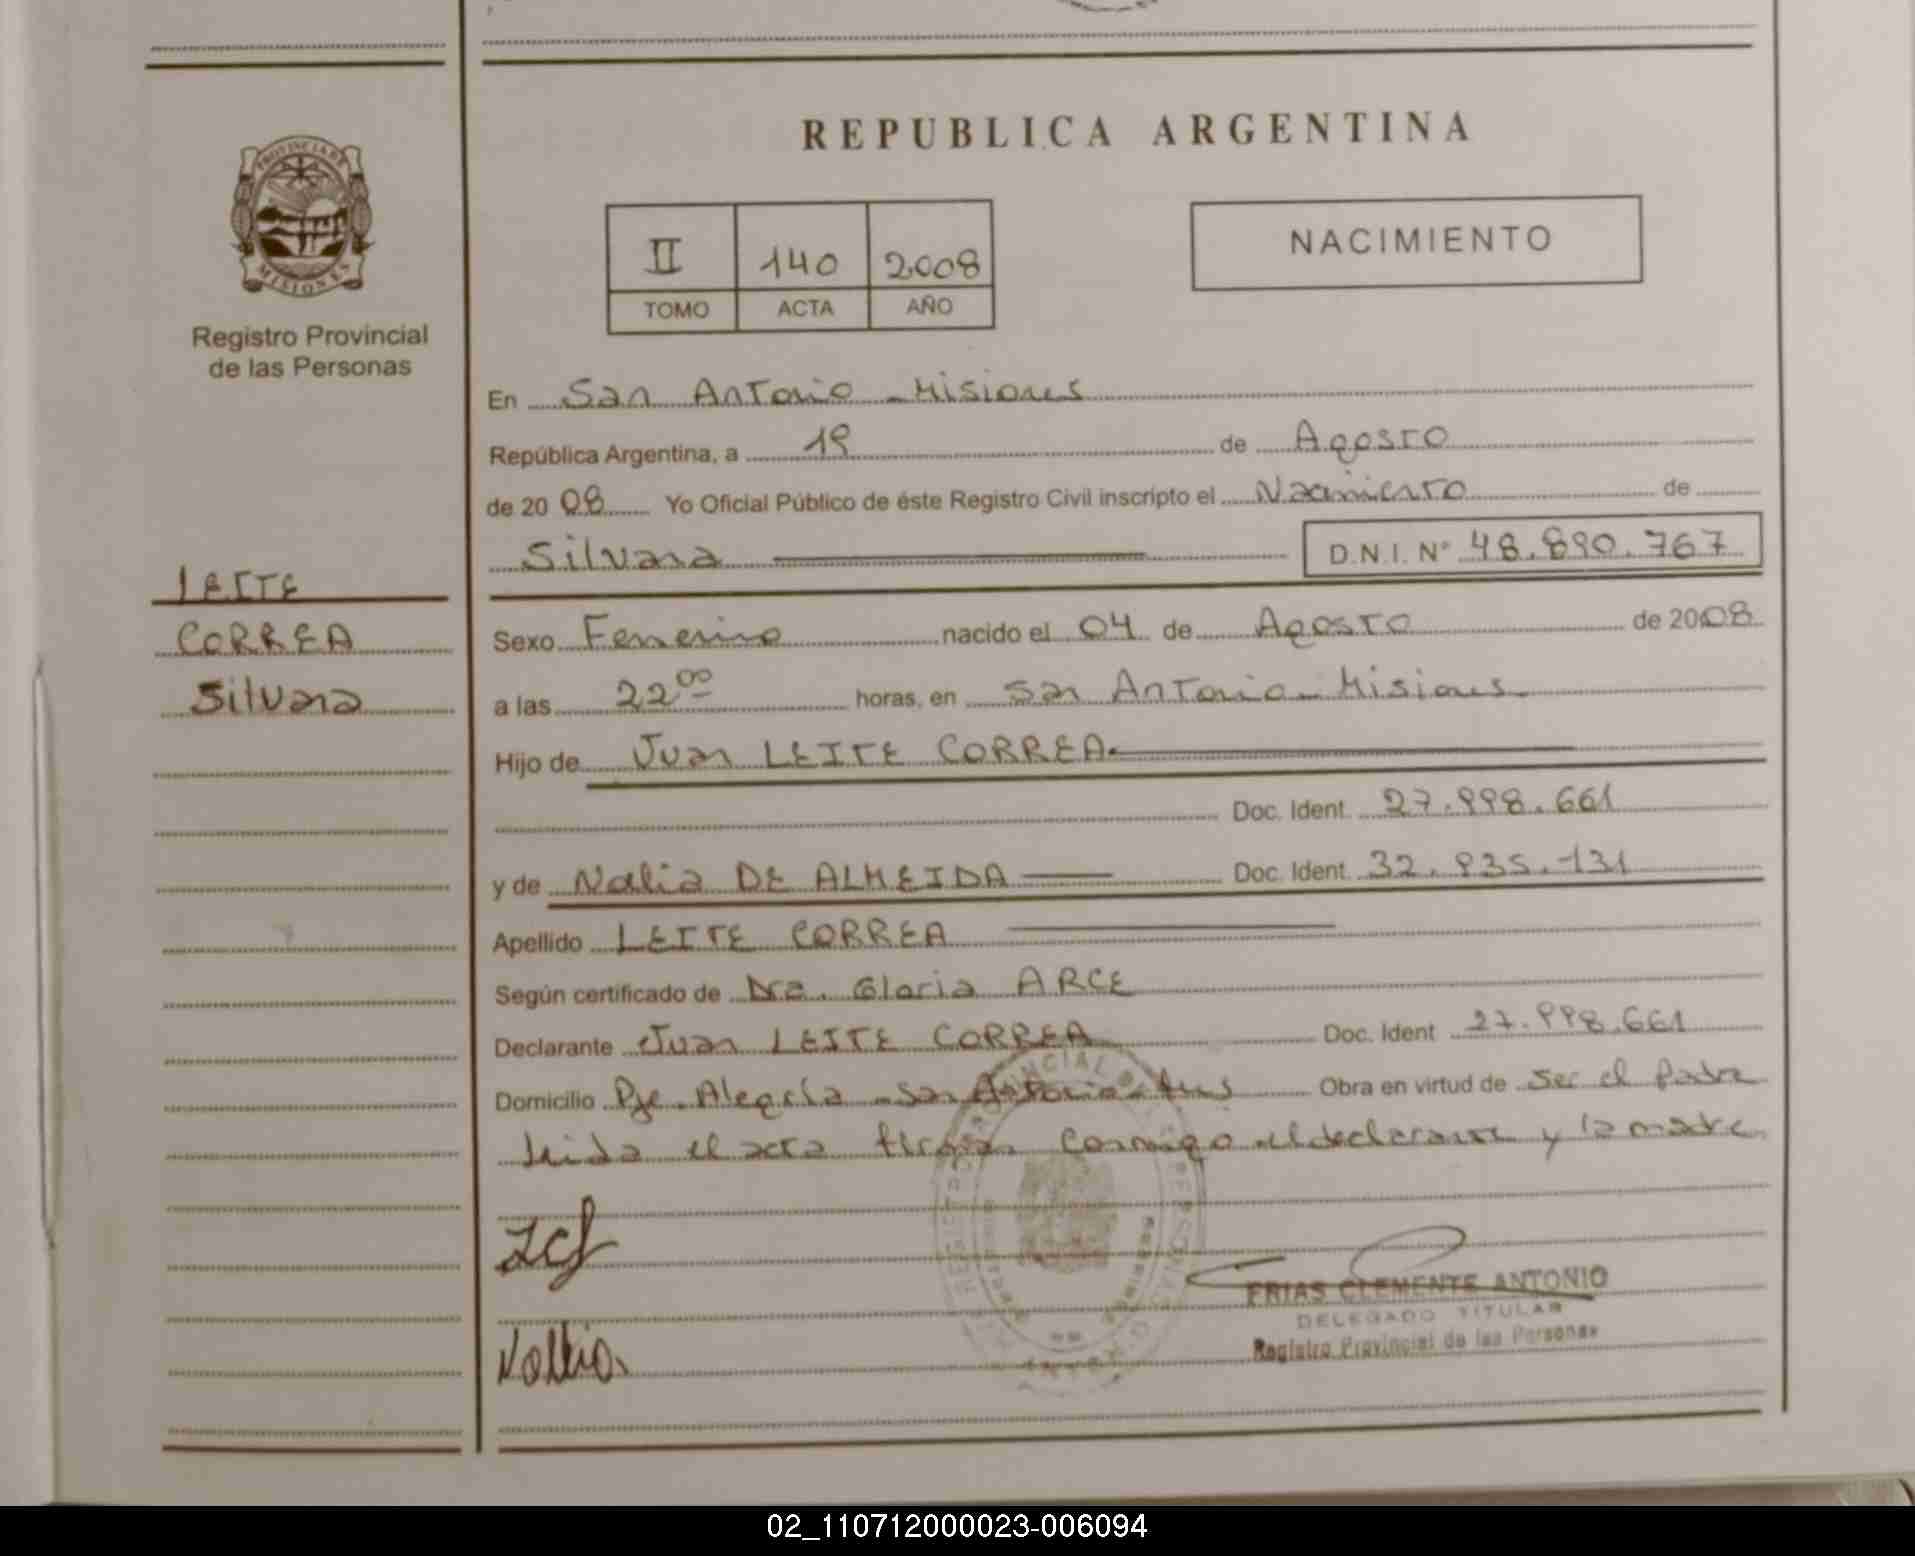 REPUBLICA ARGENTINA
PROVINCIA DE
MISIONES
Registro Provincial
de las Personas
II 140 2008
TOMO ACTA AÑO
NACIMIENTO
LEITE
CORREA
Silvana
En San Antonio - Misiones
República Argentina, a 19 de Agosto
de 2008 Yo Oficial Público de éste Registro Civil inscripto el Nacimiento de
Silvana D.N.I. N° 48.890.767
Sexo Femenino nacido el 04 de Agosto de 2008
a las 22 00 horas, en San Antonio - Misiones
Hijo de Juan LEITE CORREA
Doc. Ident. 27.998.661
y de Nalia DE ALMEIDA Doc. Ident. 32.935.131
Apellido LEITE CORREA
Según certificado de Dra. Gloria ARCE
Declarante Juan LEITE CORREA Doc. Ident 27.998.661
Domicilio Pje. Alegría - San Antonio - Mns Obra en virtud de ser el padre
Leida el acta firman conmigo el declarante y la madre
FRIAS CLEMENTE ANTONIO
DELEGADO TITULAR
Registro Provincial de las Personas
02_110712000023-006094